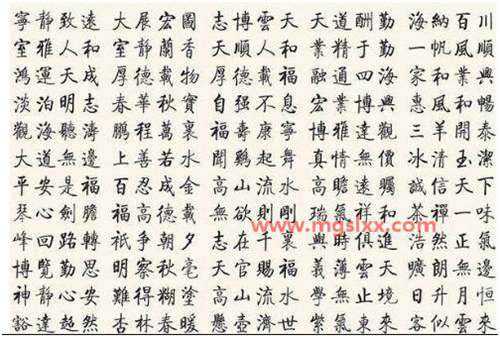 寧靜致遠 大展宏圖 志博雲天 天道酬勤 海納百川
室雅人和 室靜蘭香 大順人和 業精于勤 一帆風順
鴻運天成 厚德載物 厚德載福 融通四海 家和業興
淡泊明志 春華秋實 自強不息 宏博興業 惠風和暢
觀海聽濤 鵬程萬裏 福壽康寧 博雅達觀 三羊開泰
大道無邊 上善若水 聞鷄起舞 真情無價 冰清玉潔
平安是福 百忍成金 高山流水 高瞻遠矚 誠信天下
琴心劍膽 福高德載 無欲則剛 瑞氣祥和 茶禪一味
www.mgslxx.com
峰回路轉 祇爭朝夕 志在千裏 與時俱進 浩然正氣
博覽勤思 明察秋毫 天官賜福 義薄雲天 朗無
神靜心安 難得糊塗 高山流水 學無止境 日升月恒
豁達超然 杏林春暖 懸壺濟世 紫氣東來 客似雲來